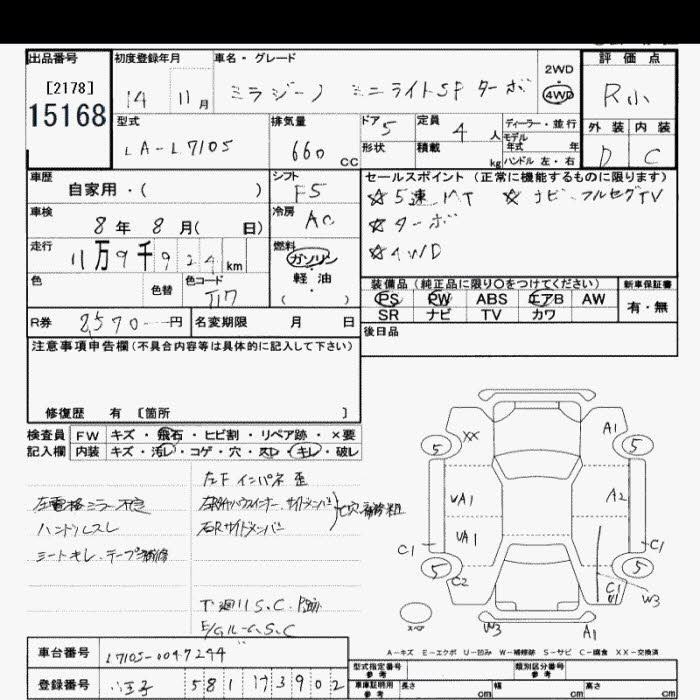 出品番号
[2178]
15168
初度登録年月
14 11 月
車名・グレード
ミラジーノ ミニライトSP ターボ
2WD
4WD
評価点
R小
外装 内装
D C
型式
LA-L710S
排気量
660 CC
ドア 5
形状
定員 4 人
積載 kg
ディーラー・並行
モデル年式 年
ハンドル 左・右
車歴
自家用・( )
シフト
F5
セールスポイント (正常に機能するものに限ります)
☆5速MT ☆ナビ・フルセグTV
☆ターボ
☆4WD
車検
8年 8月( 日)
冷房
AC
走行
11万9千924 km
燃料
ガソリン
軽油
( ・ )
色
色替
色コード
T17
装備品 (純正品に限り○をつけてください)
PS PW ABS エアB AW
SR ナビ TV カワ
新車保証書
有・無
R券 8,570 円
名変期限 月 日
後日品
注意事項申告欄 (不具合内容等は具体的に記入して下さい)
修復歴 有 [箇所 ]
検査員記入欄
FW キズ・飛石・ヒビ割・リペア跡・×要
内装 キズ・汚レ・コゲ・穴・スレ・キレ・破レ
左F インパネ 歪
左電格ミラー不良
ハンドルスレ
シートキレ・テープ補修
右Rサイドメンバ
下廻りS.C.
E/GルームS.C
XX A1
5 5
UA1 A2
UA1
C1 C1
5 5
C2 C1
W3
スペア
W3 A1
A-キズ E-エクボ U-凹み W-補修跡 S-サビ C-腐食 XX-交換済
車台番号
L710S-0047244
登録番号
八王子 581 7 3902
型式指定番号
参考
類別区分番号
参考
車庫証明用
参考
長さ cm 幅 cm 高さ cm